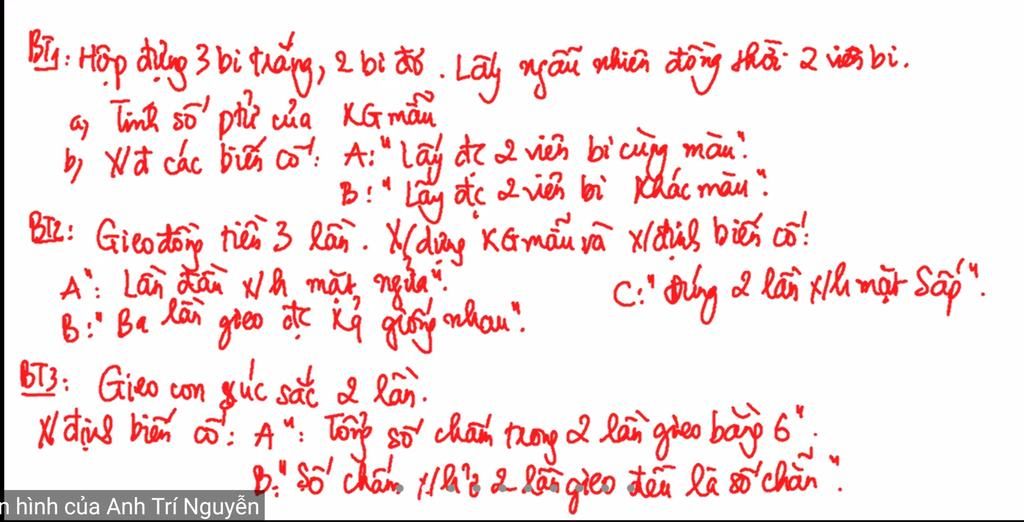 BT1: Hộp đựng 3 bi trắng, 2 bi đỏ. Lấy ngẫu nhiên đồng thời 2 viên bi.
a, Tính số ptử của KG mẫu
b, X/đ các biến cố: A: "Lấy đc 2 viên bi cùng màu".
B: "Lấy đc 2 viên bi khác màu".
BT2: Gieo đồng tiền 3 lần. X/dựng KG mẫu và x/định biến cố:
A": Lần đầu x/h mặt ngửa".
C: "Đúng 2 lần x/h mặt sấp".
B: "Ba lần gieo đc kq giống nhau".
BT3: Gieo con xúc sắc 2 lần.
X/định biến cố: A": Tổng số chấm trong 2 lần gieo bằng 6".
B: "Số chấm x/h ở 2 lần gieo đều là số chẵn".
n hình của Anh Trí Nguyễn